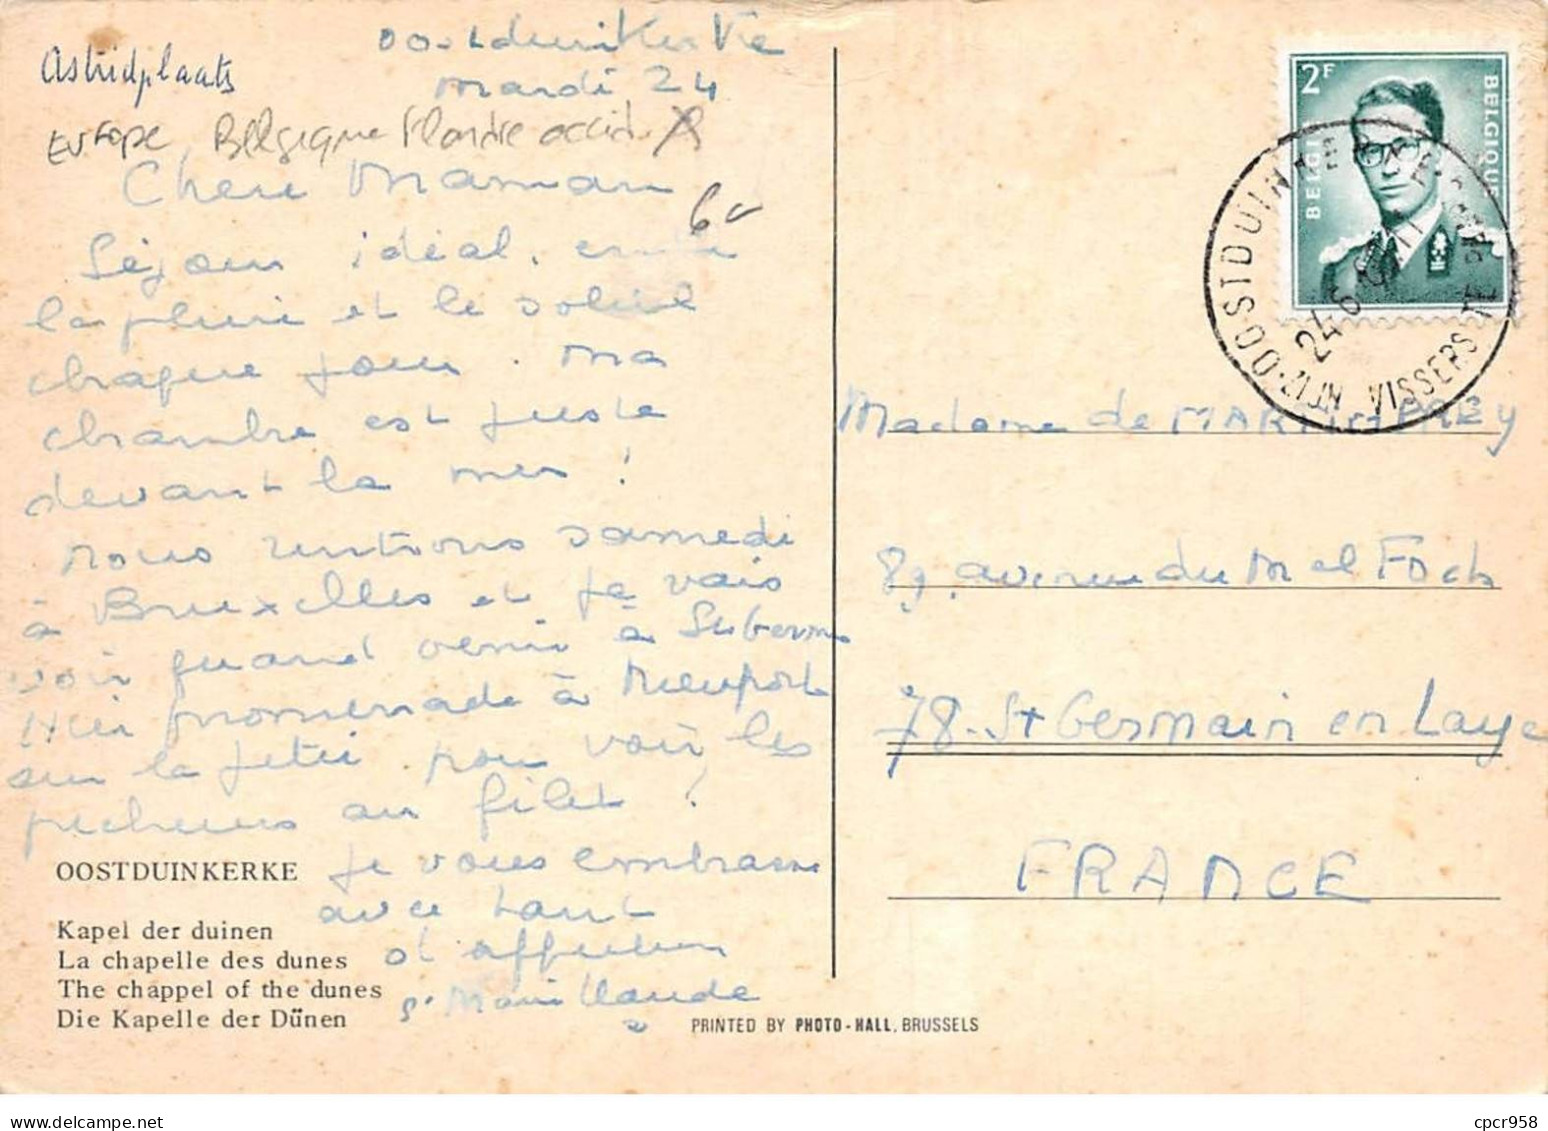 Oostduinkerke
Astridplaats
mardi 24
Europe Belgique Flandre occid.
Chère Maman
6
Séjour idéal, entre
la pluie et le soleil
chaque jour. Ma
chambre est juste
devant la mer !
nous rentrons samedi
à Bruxelles et je vais
voir quand venir à St Germ
Hier promenade à Nieuport
sur la jetée pour voir les
pêcheurs au filet !
Je vous embrasse
avec tant
d'affection
Marie Claude
OOSTDUINKERKE
Kapel der duinen
La chapelle des dunes
The chappel of the dunes
Die Kapelle der Dünen
PRINTED BY PHOTO-HALL, BRUSSELS
2F
BELGIE
BELGIQUE
OOSTDUINKERKE
24-6
VISSERS
Madame de
89, avenue du Mal Foch
78-St Germain en Laye
FRANCE
cpcr958